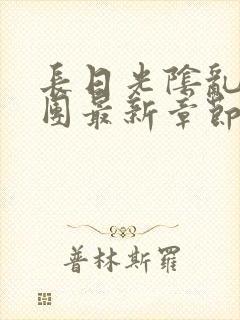 長日光陰亂
團最新章節
普林斯羅